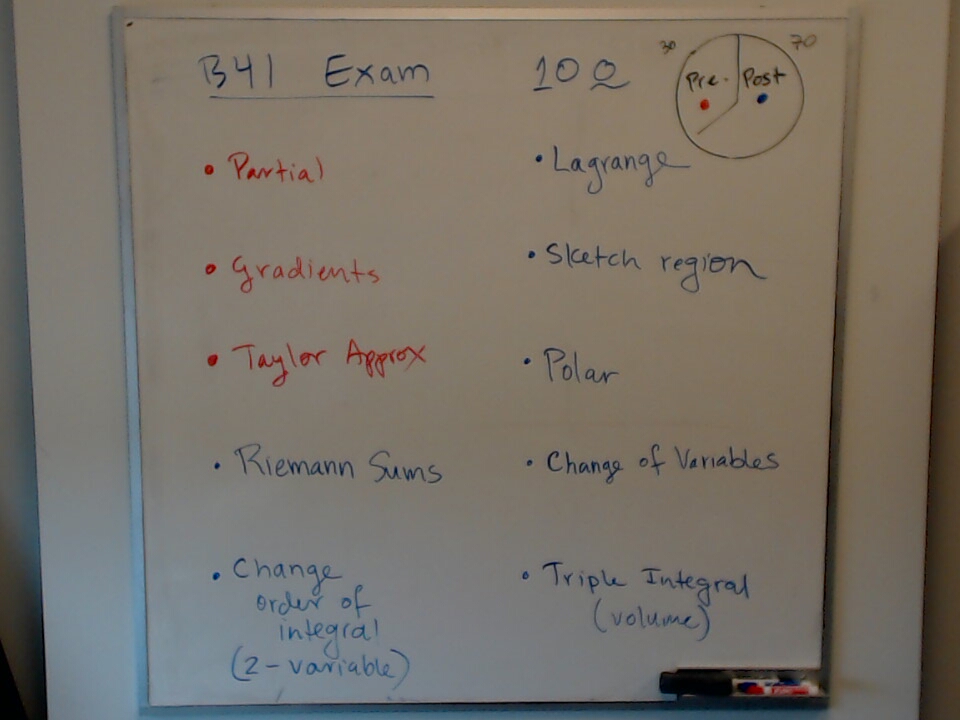 B41 Exam
10 Q
30
70
Pre.
Post
• Partial
• Gradients
• Taylor Approx
• Riemann Sums
• Change
order of
integral
(2-variable)
• Lagrange
• Sketch region
• Polar
• Change of Variables
• Triple Integral
(volume)